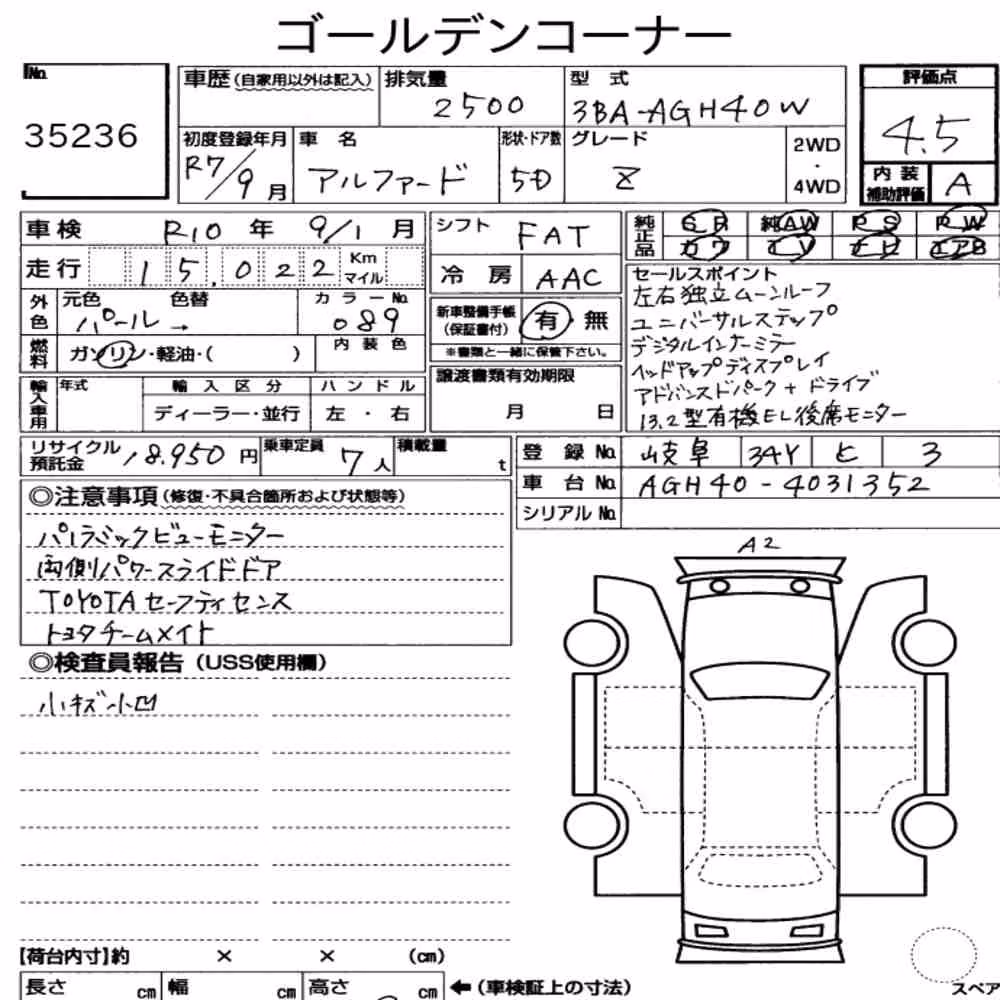 ゴールデンコーナー
No.
35236
車歴(自家用以外は記入)
排気量
2500
型 式
3BA-AGH40W
評価点
4.5
初度登録年月
R7/9月
車 名
アルファード
形状・ドア数
5D
グレード
Z
2WD
・
4WD
内装補助評価
A
車検 R10 年 9/1 月
走行 15,022 Km マイル
シフト FAT
冷 房 AAC
純正品 SR 純AW PS PW
カワ TV ナビ エアB
外色 元色 色替 カラーNo.
パール → 089
燃料 ガソリン・軽油・( ) 内装色
新車整備手帳(保証書付) 有・無
※書類と一緒に保管下さい。
セールスポイント
左右独立ムーンルーフ
ユニバーサルステップ
デジタルインナーミラー
ヘッドアップディスプレイ
アドバンスドパーク + ドライブ
13.2型有機EL後席モニター
輸入車用 年式 輸入区分 ハンドル
ディーラー・並行 左・右
譲渡書類有効期限
月 日
リサイクル預託金 18.950 円
乗車定員 7人
積載量 t
登 録 No. 岐阜 34Y ヒ 3
車 台 No. AGH40-4031352
シリアルNo.
◎注意事項(修復・不具合箇所および状態等)
パノラミックビューモニター
両側パワースライドドア
TOYOTAセーフティセンス
トヨタチームメイト
◎検査員報告(USS使用欄)
小キズ小凹
A2
【荷台内寸】約 × × (cm)
長さ cm 幅 cm 高さ cm ←(車検証上の寸法)
スペア